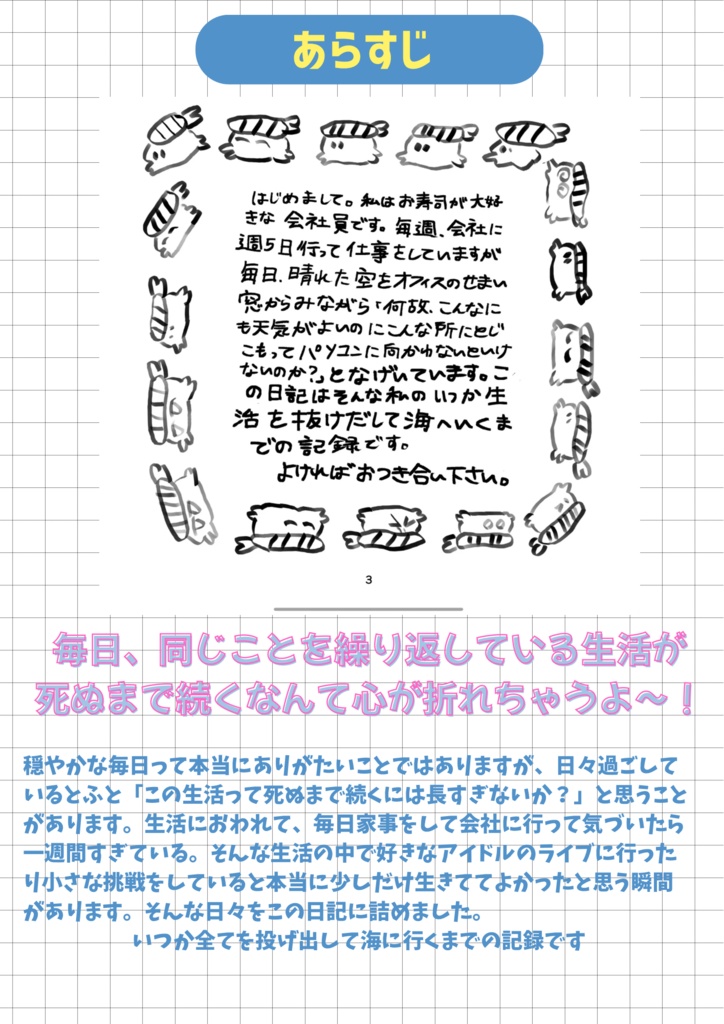 あらすじ
はじめまして。私はお寿司が大好
きな会社員です。毎週、会社に
週5日行って仕事をしていますが
毎日、晴れた空をオフィスのせまい
窓からみながら「何故、こんなに
も天気がよいのにこんな所にとじ
こもってパソコンに向かわないといけ
ないのか?」となげいています。こ
の日記はそんな私のいつか生
活を抜けだして海へいくま
での記録です。
よければおつき合い下さい。
3
毎日、同じことを繰り返している生活が
死ぬまで続くなんて心が折れちゃうよ〜！
穏やかな毎日って本当にありがたいことではありますが、日々過ごして
いるとふと「この生活って死ぬまで続くには長すぎないか？」と思うこと
があります。生活におわれて、毎日家事をして会社に行って気づいたら
一週間すぎている。そんな生活の中で好きなアイドルのライブに行った
り小さな挑戦をしていると本当に少しだけ生きててよかったと思う瞬間
があります。そんな日々をこの日記に詰めました。
いつか全てを投げ出して海に行くまでの記録です